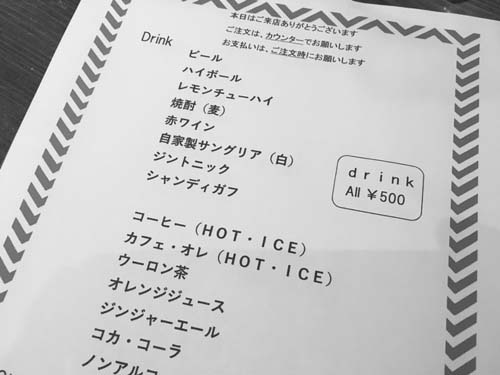 本日はご来店ありがとうございます
ご注文は、カウンターでお願いします
お支払いは、ご注文時にお願いします
Drink
ビール
ハイボール
レモンチューハイ
焼酎（麦）
赤ワイン
自家製サングリア（白）
ジントニック
シャンディガフ
drink
All ￥500
コーヒー（HOT・ICE）
カフェ・オレ（HOT・ICE）
ウーロン茶
オレンジジュース
ジンジャーエール
コカ・コーラ
ノンアルコ